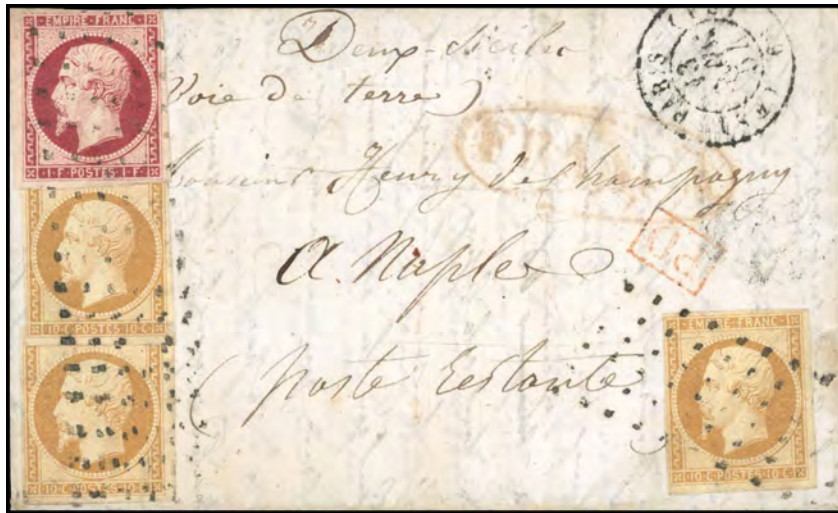 EMPIRE FRANC
1 F POSTES 1 F
10 C POSTES 10 C
10 C POSTES 10 C
Deux-Siciles
(Voie de terre)
PARIS
Monsieur Henry de Champagny
A Naples
PD
(poste restante)
EMPIRE FRANC
10 C POSTES 10 C